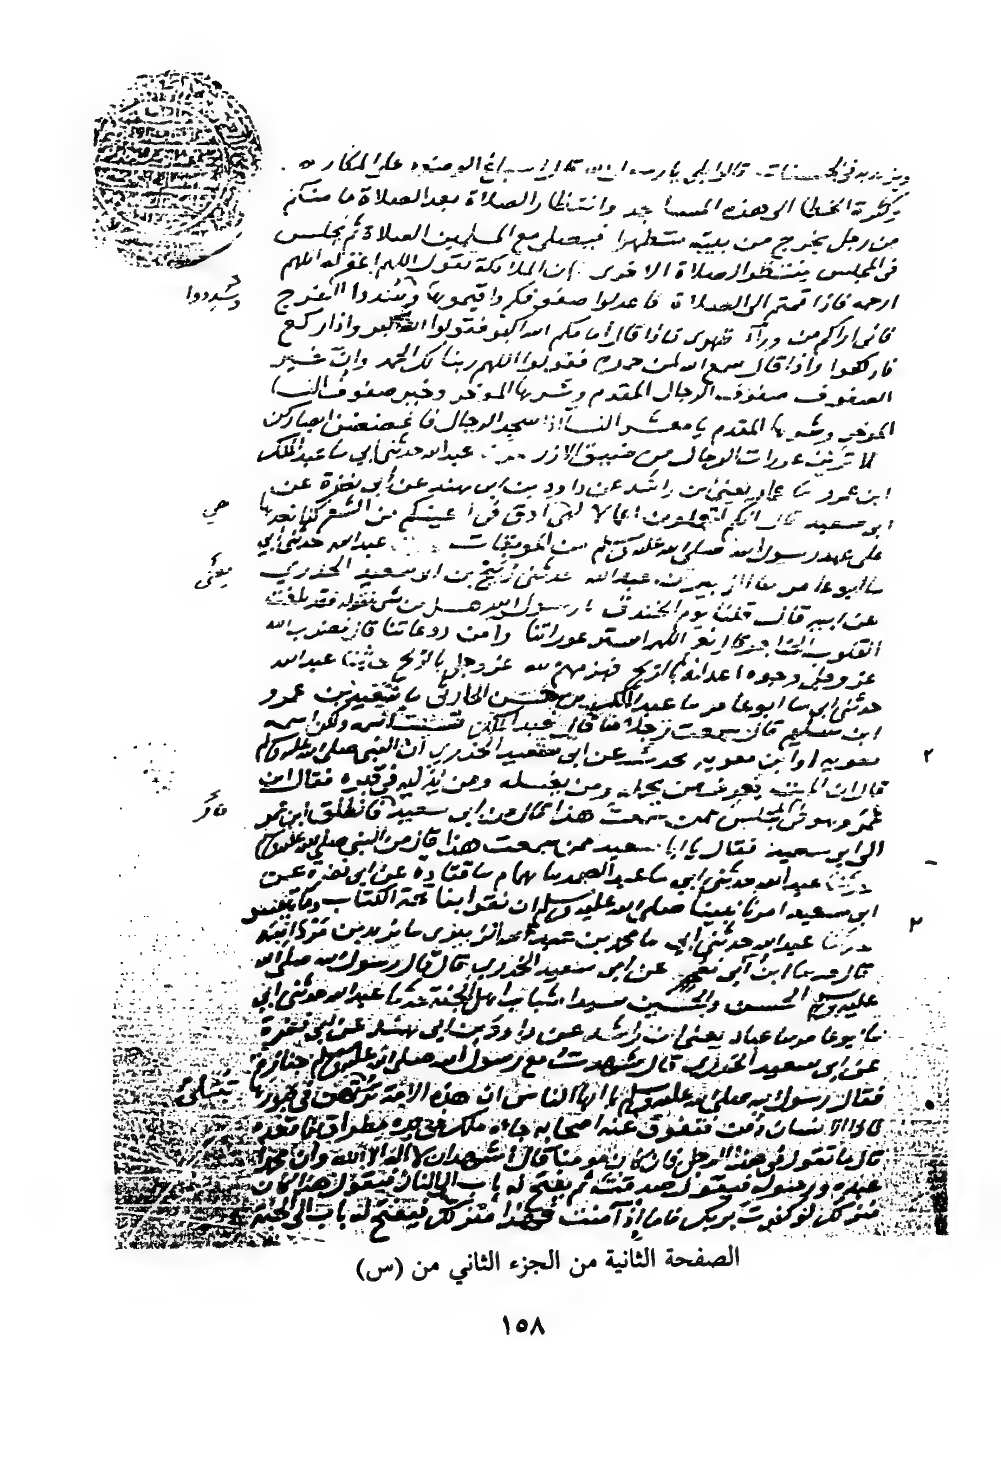 ويزيد به في الحسنات قالوا بلى يا رسول الله قال اسباغ الوضوء على المكاره
وكثرة الخطا الى هذه المساجد وانتظار الصلاة بعد الصلاة ما منكم
من رجل يخرج من بيته متطهرا فيصلي مع المسلمين الصلاة ثم يجلس
في المجلس ينتظر الصلاة الاخرى ان الملائكة تقول اللهم اغفر له اللهم
ارحمه فاذا قمتم الى الصلاة فاعدلوا صفوفكم واقيموها وسدوا الفرج
فاني اراكم من وراء ظهري فاذا قال امامكم الله اكبر فقولوا الله اكبر واذا ركع
فاركعوا واذا قال سمع الله لمن حمده فقولوا اللهم ربنا لك الحمد وان خير
الصفوف صفوف الرجال المقدم وشرها الموخر وخير صفوف النسا
الموخر وشرها المقدم يا معشر النسا اذا سجد الرجال فاغضضن ابصاركن
لا ترين عورات الرجال من ضيق الازر عبد الله حدثني ابي سا عبد الملك
ابن عمرو سا عباد يعني ابن راشد عن داود بن ابي هند عن أبي نضرة عن
ابي سعيد قال انكم لتعملون اعمالا لهي ادق في اعينكم من الشعر كنا نعدها
على عهد رسول الله صلى الله عليه وسلم من الموبقات عبد الله حدثني ابي
سا ابو عامر سا الزبير بن عبد الله حدثني ربيح بن ابي سعيد الخدري
عن ابيه قال قلنا يوم الخندق يا رسول الله هل من شي نقوله فقد بلغت
القلوب الحناجر قال نعم اللهم استر عوراتنا وامن روعاتنا قال فضرب الله
عز وجل وجوه اعدائه بالريح فهزمهم الله عز وجل بالريح حدثنا عبد الله
حدثني ابي سا ابو عامر سا عبد الملك بن حسن الحارثي سا سعيد بن عمرو
ابن سليم قال سمعت رجلا منا قال عبد الملك نسيت اسمه ولكن اسمه
معويه او ابن معويه يحدث عن ابي سعيد الخدري ان النبي صلى الله عليه وسلم
قال ان الميت يعرف من يحمله ومن يغسله ومن يدليه في قبره فقال ابن
عمر وهو في المجلس ممن سمعت هذا قال من ابي سعيد فانطلق ابن عمر
الى ابي سعيد فقال يا ابا سعيد ممن سمعت هذا قال من النبي صلى الله عليه وسلم
حدثنا عبد الله حدثني ابي سا عبد الصمد سا همام سا قتادة عن ابي نضرة عن
ابي سعيد امرنا نبينا صلى الله عليه وسلم ان نقرا بفاتحة الكتاب وما تيسر
حدثنا عبد الله حدثني ابي سا محمد بن عبد الله الزبيري سا يزيد بن مردانبه
قال سا ابن أبي نعم عن ابي سعيد الخدري قال قال رسول الله صلى الله
عليه وسلم الحسن والحسين سيدا شباب اهل الجنة حدثنا عبد الله حدثني ابي
سا ابو عامر سا عباد يعني ابن راشد عن داود بن ابي هند عن ابي نضرة
عن ابي سعيد الخدري قال شهدت مع رسول الله صلى الله عليه وسلم جنازة
فقال رسول الله صلى الله عليه وسلم يا ايها الناس ان هذه الامة تبتلى في قبورها
فاذا الانسان دفن فتفرق عنه اصحابه جاءه ملك في يده مطراق فاقعده
قال ما تقول في هذا الرجل فان كان مومنا قال اشهد ان لا اله الا الله وان محمدا
عبده ورسوله فيقول صدقت ثم يفتح له باب الى النار فيقول هذا كان
منزلك لو كفرت بربك فاما اذ آمنت فهذا منزلك فيفتح له باب الى الجنة
وسددوا
هي
يعني
تبتلى
٢
٢
الصفحة الثانية من الجزء الثاني من (س)
١٥٨